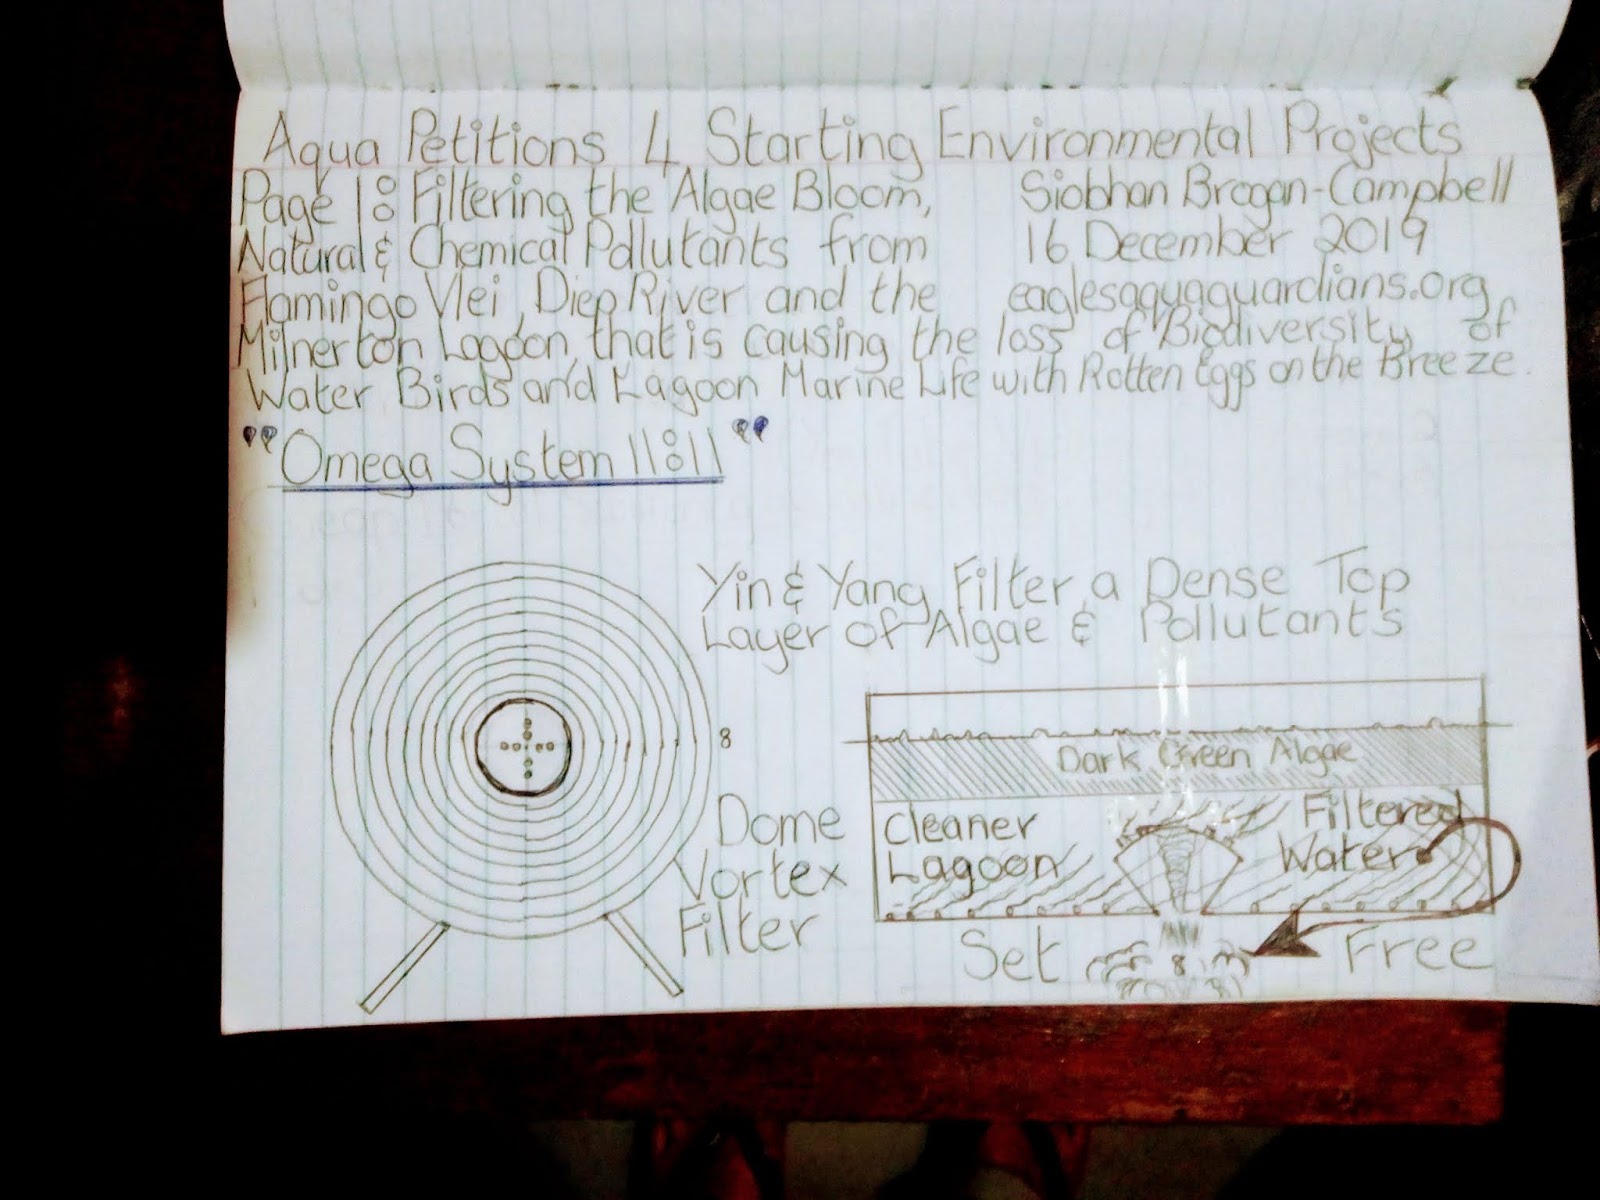 Aqua Petitions 4 Starting Environmental Projects
Page 1: Filtering the Algae Bloom, Siobhan Brogan-Campbell
Natural & Chemical Pollutants from 16 December 2019
Flamingo Vlei, Diep River and the eaglesaquaguardians.org
Milnerton Lagoon, that is causing the loss of Biodiversity, of
Water Birds and Lagoon Marine Life with Rotten Eggs on the Breeze.
"Omega System 11:11"
Yin & Yang Filter a Dense Top
Layer of Algae & Pollutants
8
Dome
Vortex
Filter
Dark Green Algae
Cleaner
Lagoon
Filtered
Water
Set 8 Free